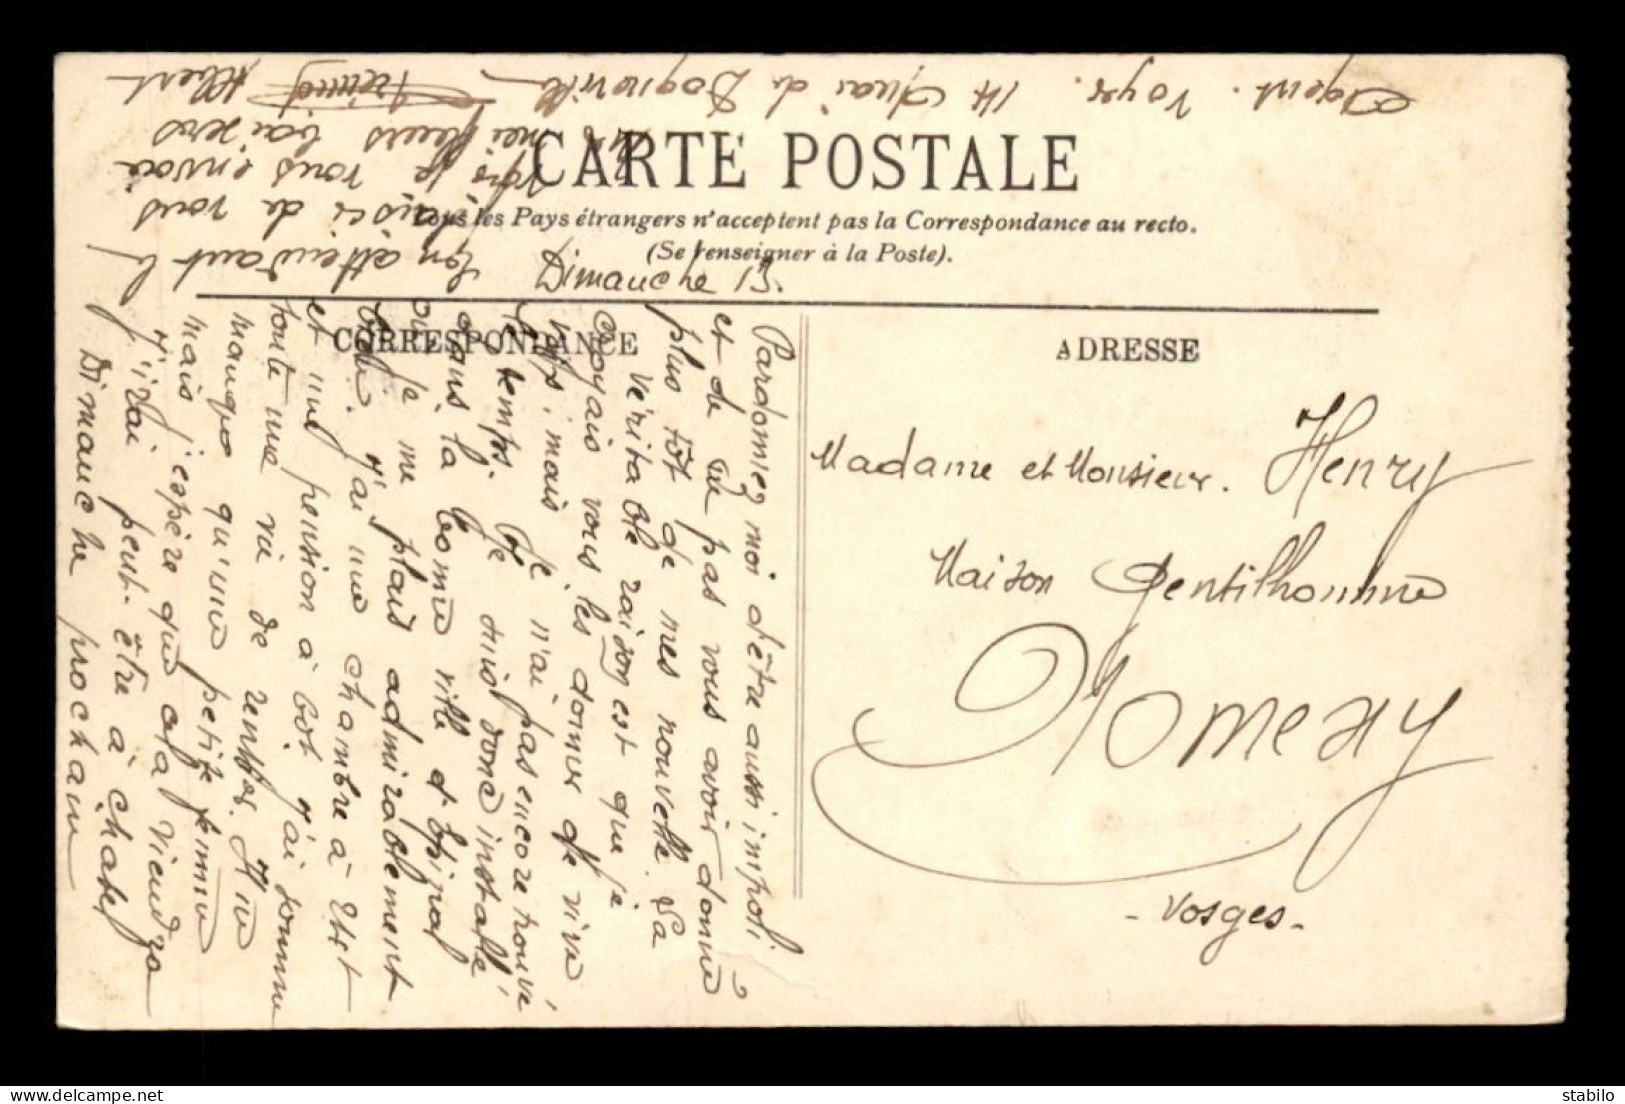 CARTE POSTALE
Tous les Pays étrangers n'acceptent pas la Correspondance au recto.
(Se renseigner à la Poste).
CORRESPONDANCE
ADRESSE
Dimanche 15.
Pardonnez moi d'être aussi impoli
et de ne pas vous avoir donné
plus tôt de mes nouvelles. La
véritable raison est que je
croyais vous les donner de vive
voix, mais je n'ai pas encore trouvé
le temps. Je suis donc installé
dans la bonne ville d'Epinal
où je me plais admirablement
J'ai une chambre à
et une pension à côté j'ai somme
toute une vie de rentier. Il ne
manque qu'une petite femme
mais j'espère que cela viendra
J'irai peut-être à Châtel
Dimanche prochain
En attendant le
plaisir de vous
voir je vous envoie
mes meilleurs baisers
Albert
Agent. Voyer. 14 Quai de Dogneville
Madame et Monsieur. Henry
Maison Gentilhomme
Nomexy
- Vosges -
delcampe.net
stabilo